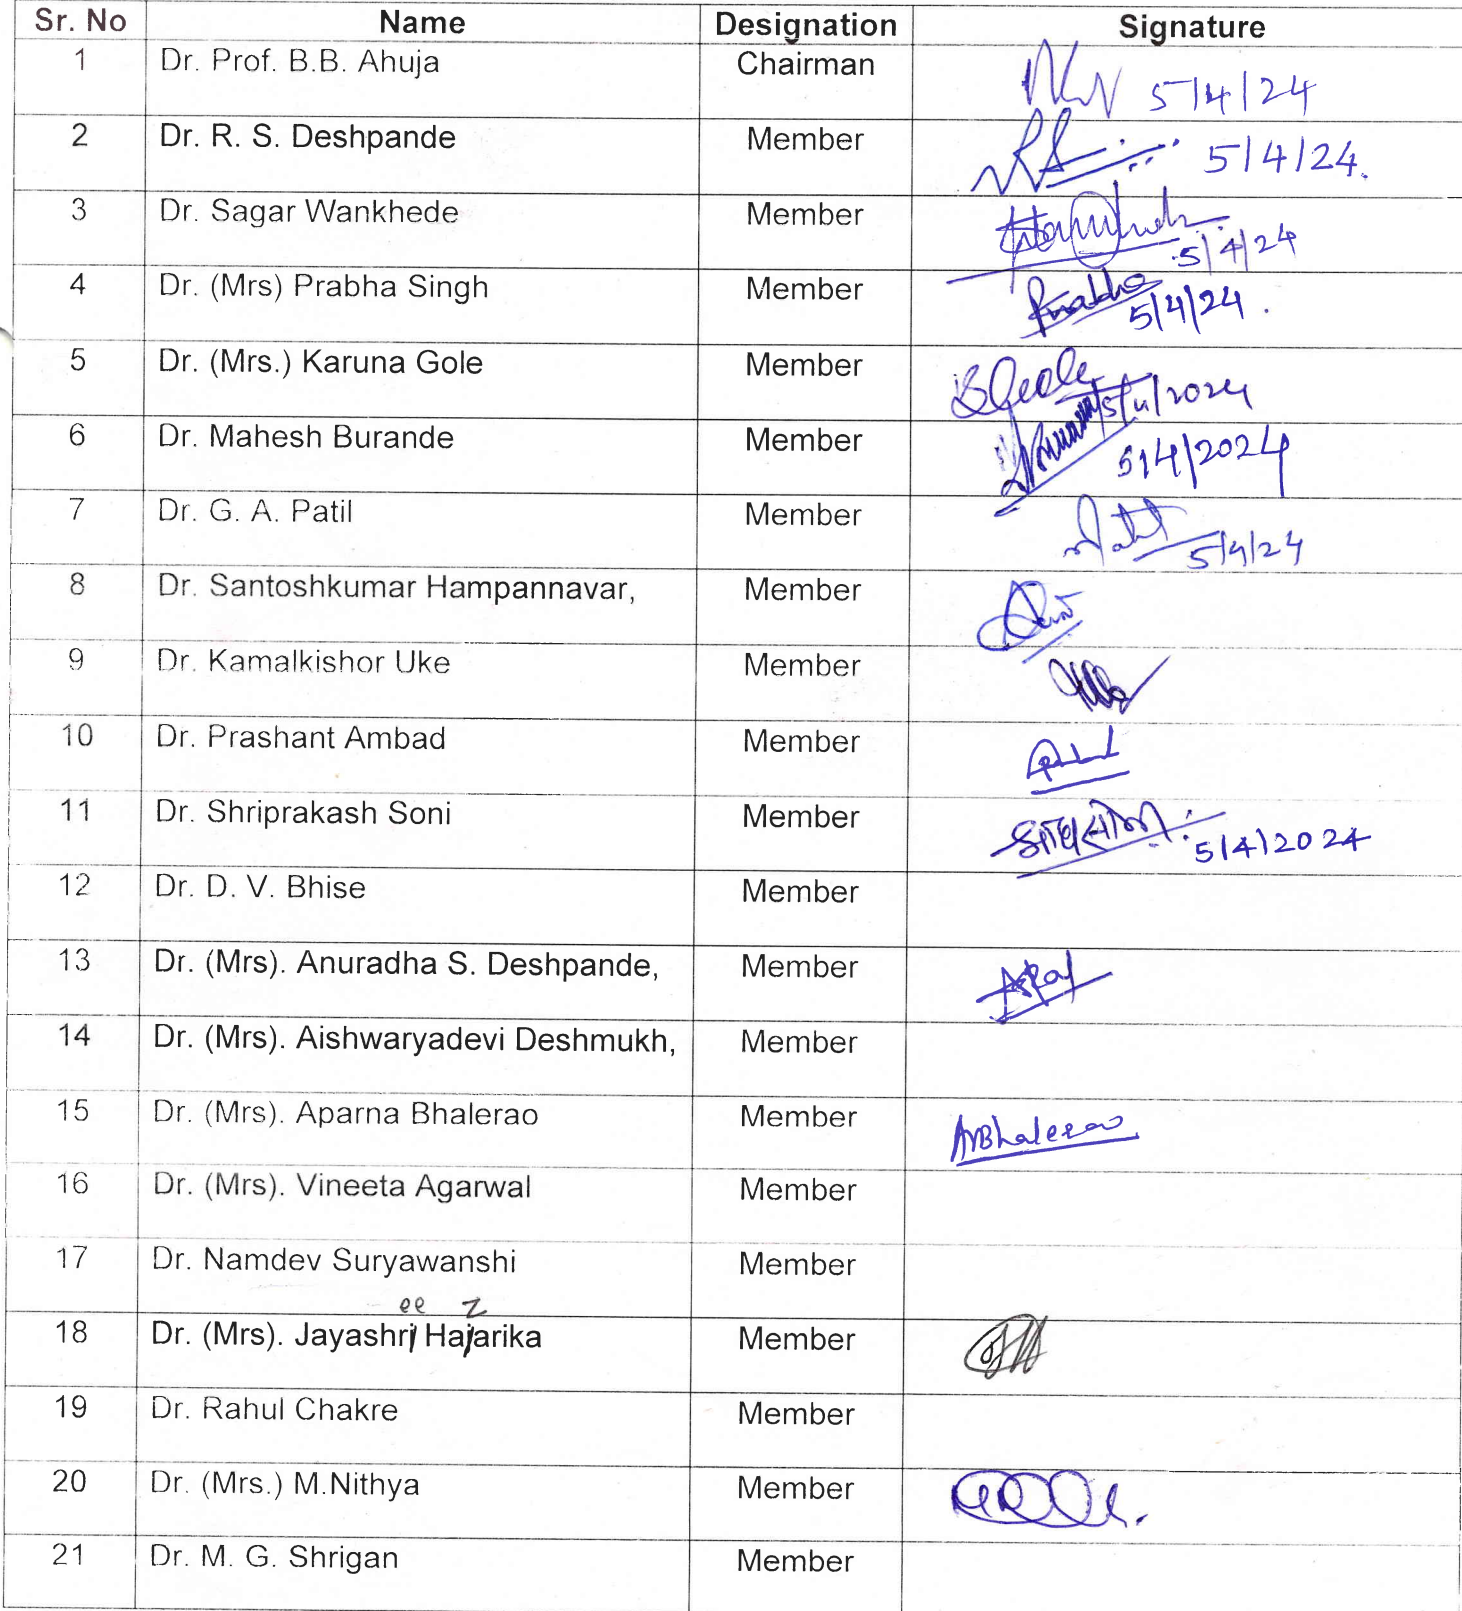 Sr. No Name Designation Signature
1 Dr. Prof. B.B. Ahuja Chairman 5/4/24
2 Dr. R. S. Deshpande Member 5/4/24.
3 Dr. Sagar Wankhede Member 5/4/24
4 Dr. (Mrs) Prabha Singh Member Prabha 5/4/24.
5 Dr. (Mrs.) Karuna Gole Member 5/4/2024
6 Dr. Mahesh Burande Member 5/4/2024
7 Dr. G. A. Patil Member Patil 5/4/24
8 Dr. Santoshkumar Hampannavar, Member
9 Dr. Kamalkishor Uke Member
10 Dr. Prashant Ambad Member
11 Dr. Shriprakash Soni Member 5/4/2024
12 Dr. D. V. Bhise Member
13 Dr. (Mrs). Anuradha S. Deshpande, Member
14 Dr. (Mrs). Aishwaryadevi Deshmukh, Member
15 Dr. (Mrs). Aparna Bhalerao Member ABhalerao
16 Dr. (Mrs). Vineeta Agarwal Member
17 Dr. Namdev Suryawanshi Member
ee z
18 Dr. (Mrs). Jayashri Hajarika Member
19 Dr. Rahul Chakre Member
20 Dr. (Mrs.) M.Nithya Member
21 Dr. M. G. Shrigan Member